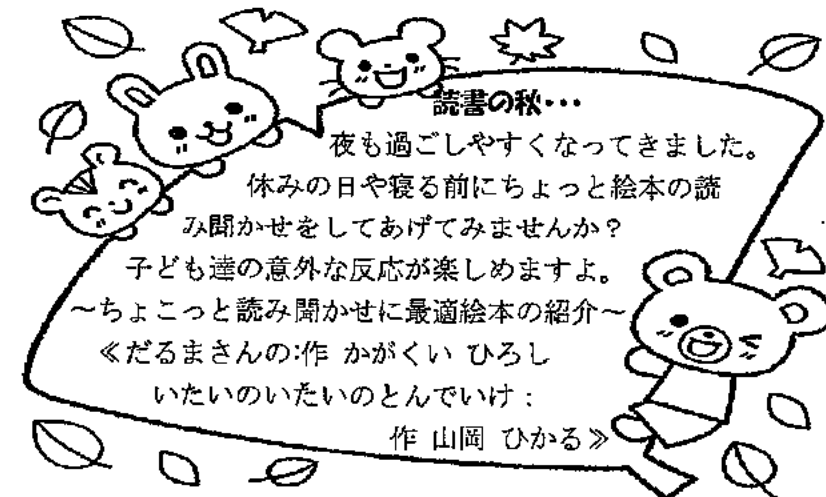 読書の秋・・・
夜も過ごしやすくなってきました。
休みの日や寝る前にちょっと絵本の読
み聞かせをしてあげてみませんか？
子ども達の意外な反応が楽しめますよ。
～ちょこっと読み聞かせに最適絵本の紹介～
≪だるまさんの:作 かがくい ひろし
いたいのいたいのとんでいけ：
作 山岡 ひかる≫